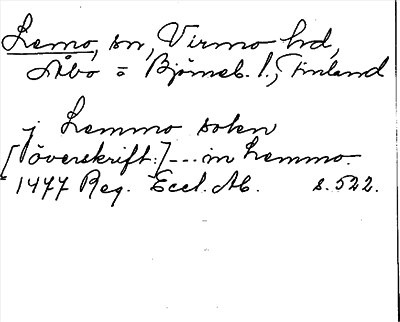 Lemo, sn, Virmo hd,
Åbo = Björneb. l., Finland
j Lemmo sokn
[överskrift:] --- in Lemmo.
1477 Reg. Eccl. Ab. s. 522.